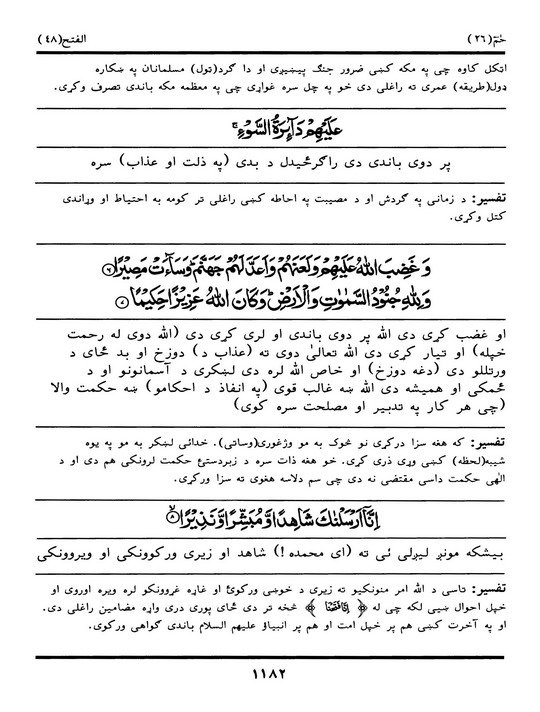 حٰمٓ(۲۶) الفتح(۴۸)
اټکل کاوه چی په مکه کښی ضرور جنګ پیښیږی او دا ګرد(ټول) مسلمانان په ښکاره
ډول(طریقه) عمری ته راغلی دی خو په چل سره غواړی چی په معظمه مکه باندی تصرف وکړی.
عَلَيْهِمْ دَآئِرَةُ السَّوْءِ ۚ
پر دوی باندی دی راګرځیدل د بدی (په ذلت او عذاب) سره
تفسیر: د زمانی په ګردش او د مصیبت په احاطه کښی راغلی تر کومه به احتیاط او وړاندی
کتل وکړی.
وَ غَضِبَ اللهُ عَلَيْهِمْ وَلَعَنَهُمْ وَاَعَدَّ لَهُمْ جَهَنَّمَ ؕ وَسَآءَتْ مَصِيْرًا ۶
وَ لِلّٰهِ جُنُوْدُ السَّمٰوٰتِ وَالْاَرْضِ ؕ وَكَانَ اللهُ عَزِيْزًا حَكِيْمًا ۷
او غضب کړی دی الله پر دوی باندی او لری کړی دی (الله دوی له رحمت
خپله) او تیار کړی دی الله تعالیٰ دوی ته (عذاب د) دوزخ او بد ځای د
ورتللو دی (دغه دوزخ) او خاص الله لره دی لښکری د آسمانونو او د
ځمکی او همیشه دی الله ښه غالب قوی (په انفاذ د احکامو) ښه حکمت والا
(چی هر کار په تدبیر او مصلحت سره کوی)
تفسیر: که هغه سزا درکړی نو څوک به مو وژغوری(وساتی). خدائی لښکر به مو په یوه
شیبه(لحظه) کښی وړی ذری کړی. خو هغه ذات سره د زبردستیٔ حکمت لرونکی هم دی او د
الٰهی حکمت داسی مقتضی نه دی چی سم دلاسه هغوی ته سزا ورکړی.
اِنَّآ اَرْسَلْنٰكَ شَاهِدًا وَّ مُبَشِّرًا وَّ نَذِيْرًا ۸
بیشکه مونږ لیږلی ئی ته (ای محمده!) شاهد او زیری ورکوونکی او ویروونکی
تفسیر: تاسی د الله امر منونکیو ته زیری د خوښی ورکویٔ او غاړه غړوونکو لره ویره اوروی او
خپل احوال ښیی لکه چی له ﴿اِنَّا فَتَحْنَا﴾ څخه تر دی ځای پوری دری واړه مضامین راغلی دی.
او په آخرت کښی هم پر خپل امت او هم پر انبیاؤ علیهم السلام باندی ګواهی ورکوی.
۱۱۸۲